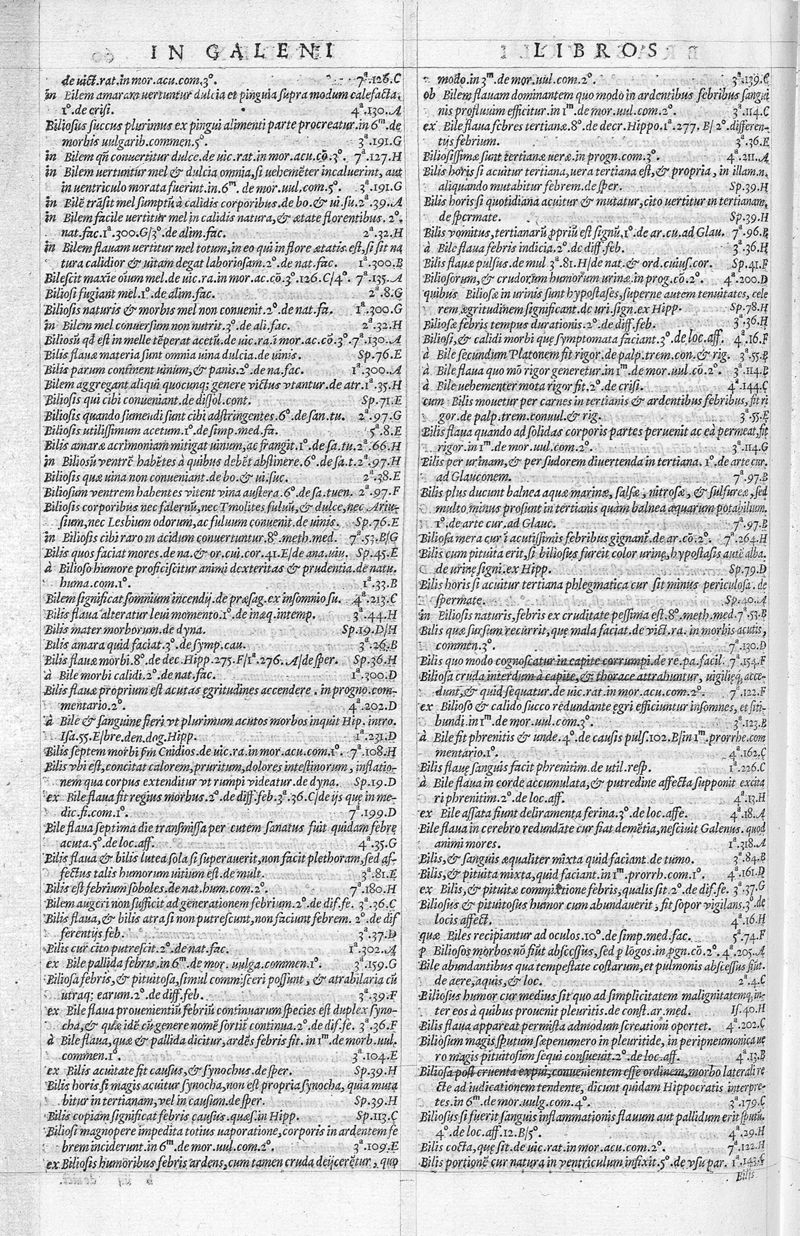 IN GALENI
de uict.rat.in mor.acu.com.3°. 7ª.126.C
in Bilem amaram uertuntur dulcia et pinguia supra modum calefacta,
1°.de crisi. 4ª.130.A
Biliosus succus plurimus ex pingui alimenti parte procreatur.in 6m.de
morbis uulgarib.commen.5°. 3ª.191.G
in Bilem qñ conuertitur dulce.de uic.rat.in mor.acu.cō.3°. 7ª.127.H
in Bilem uertuntur mel & dulcia omnia,si uehemẽter incaluerint, aut
in uentriculo morata fuerint.in.6m. de mor.uul.com.5°. 3ª.191.G
in Bilẽ trãsit mel sumptũ à calidis corporibus.de bo.& ui.su.2ª.39.A
in Bilem facile uertitur mel in calidis natura,& ætate florentibus. 2°.
nat.fac.1ª.300.G/3°.de alim.fac. 2ª.32.H
in Bilem flauam uertitur mel totum,in eo qui in flore ætatis est,si sit na
tura calidior & uitam degat laboriosam.2°.de nat.fac. 1ª.300.B
Bilescit maxie oium mel.de uic.ra.in mor.ac.cō.3°.126.C/4°. 7ª.135.A
Biliosi fugiant mel.1°.de alim.fac. 2ª.8.G
Biliosis naturis & morbis mel non conuenit.2°.de nat.fa. 1ª.300.G
in Bilem mel conuersum non nutrit.3°.de ali.fac. 2ª.32.H
Biliosũ qd est in melle tẽperat acetũ.de uic.ra.i mor.ac.cō.3°.7ª.130.A
Bilis flauæ materia sunt omnia uina dulcia.de uinis. Sp.76.E
Bilis parum continent uinum,& panis.2°.de na.fac. 1ª.300.A
Bilem aggregant aliqui quocunq; genere victus vtantur.de atr.1ª.35.H
Biliosis qui cibi conueniant.de dissol.cont. Sp.71.E
Biliosis quando sumendi sunt cibi adstringentes.6°.de san.tu. 2ª.97.G
Biliosis utilissimum acetum.1°.de simp.med.fa. 5ª.8.E
Bilis amaræ acrimoniam mitigat uinum,ac frangit.1°.de sa.tu.2ª.66.H
in Biliosũ ventrẽ habẽtes à quibus debẽt abstinere.6°.de sa.t.2ª.97.H
Biliosis quæ uina non conueniant.de bo.& ui.suc. 2ª.38.E
Biliosum ventrem habentes vitent vina austera.6°.de sa.tuen. 2ª.97.F
Biliosis corporibus nec falernũ,nec Tmolites suluũ,& dulce,nec Ariu-
sium,nec Lesbium odorum,ac fuluum conuenit.de uinis. Sp.76.E
in Biliosis cibi raro in acidum conuertuntur.8°.meth.med. 7ª.53.B/G
Bilis quos faciat mores.de na.& or.cui.cor.41.E/de ana.uiu. Sp.45.E
à Bilioso humore proficiscitur animi dexteritas & prudentia.de natu.
huma.com.1°. 1ª.33.B
Bilem significat somnium incendij.de præsag.ex insomnio su. 4ª.213.C
Bilis flaua alteratur leui momento.1°.de inæq.intemp. 3ª.44.H
Bilis mater morborum.de dyna. Sp.19.D/H
Bilis amara quid faciat.3°.de symp.cau. 3ª.26.B
Bilis flauæ morbi.8°.de dec.Hipp.275.F/1ª.276.A/de sper. Sp.36.H
à Bile morbi calidi.2°.de nat.fac. 1ª.300.D
Bilis flauæ proprium est acutas egritudines accendere.in progno.com-
mentario.2°. 4ª.202.D
à Bile & sanguine fieri vt plurimum acutos morbos inquit Hip.intro.
Isa.55.E/bre.den.dog.Hipp. 1ª.231.D
Bilis septem morbi fm Cnidios.de uic.ra.in mor.acu.com.1°. 7ª.108.H
Bilis vbi est,concitat calorem,pruritum,dolores intestinorum,inflatio-
nem qua corpus extenditur vt rumpi videatur.de dyna. Sp.19.D
ex Bile flaua fit regius morbus.2°.de diff.feb.3ª.36.C/de ijs quæ in me-
dic.fi.com.1°. 7ª.199.D
Bile flaua septima die transmissa per cutem sanatus fuit quidam febre
acuta.5°.de loc.aff. 4ª.35.G
Bilis flaua & bilis lutea sola si superauerit,non facit plethoram,sed af-
fectus talis humorum uitium est.de mult. 3ª.81.E
Bilis est febrium soboles.de nat.hum.com.2°. 7ª.180.H
Bilem augeri non sufficit ad generationem febrium.2°.de dif.fe. 3ª.36.C
Bilis flaua,& bilis atra si non putrescunt,non faciunt febrem. 2°.de dif
ferentijs feb. 3ª.37.D
Bilis cur cito putrescit.2°.de nat.fac. 1ª.302.A
ex Bile pallida febris.in 6m.de mor.uulga.commen.1°. 3ª.159.G
Biliosa febris,& pituitosa,simul commisceri possunt,& atrabilaria cū
utraq; earum.2°.de diff.feb. 3ª.39.F
ex Bile flaua prouenientiũ febriũ continuarum species est duplex syno-
cha,& quæ idẽ cũ genere nomẽ sortit continua.2°.de dif.fe. 3ª.36.F
à Bile flaua,quæ & pallida dicitur,ardẽs febris fit.in 1m.de morb.uul.
commen.1°. 3ª.104.E
ex Bilis acuitate fit causus,& synochus.de sper. Sp.39.H
Bilis horis si magis acuitur synocha,non est propria synocha,quia muta
bitur in tertianam,vel in causum.de sper. Sp.39.H
Bilis copiam significat febris causus.quæs.in Hipp. Sp.113.C
Biliosi magnopere impedita totius uaporatione,corporis in ardentem fe
brem inciderunt.in 6m.de mor.uul.com.2°. 3ª.109.E
ex Biliosis humoribus febris ardens,cum tamen cruda deijcerẽtur, quo
LIBROS
modo.in 3m.de mor.uul.com.2°. 3ª.139.C
ob Bilem flauam dominantem quo modo in ardentibus febribus sangui
nis profluuium efficitur.in 1m.de mor.uul.com.2°. 3ª.114.C
ex Bile flaua febres tertianæ.8°.de decr.Hippo.1ª.277.B/2°.differen-
tus febrium. 3ª.36.E
Biliosissimæ sunt tertianæ ueræ.in progn.com.3°. 4ª.211.A
Bilis horis si acuitur tertiana,uera tertiana est,& propria, in illam.n.
aliquando mutabitur febrem.de sper. Sp.39.H
Bilis horis si quotidiana acuitur & mutatur,cito uertitur in tertianam,
de spermate. Sp.39.H
Bilis vomitus,tertianarũ ppriũ est signũ.1°.de ar.cu.ad Glau. 7ª.96.B
à Bile flaua febris indicia.2°.de diff.feb. 3ª.36.H
Bilis flauæ pulsus.de mul 3ª.81.H/de nat.& ord.cuiuf.cor. Sp.41.F
Biliosorum,& crudorum humorum urinæ.in prog.cō.2°. 4ª.200.D
quibus Biliosæ in urinis sunt hypostases,superne autem tenuitates, cele
rem ægritudinem significant.de uri.sign.ex Hipp. Sp.78.H
Biliosæ febris tempus durationis.2°.de diff.feb. 3ª.36.H
Biliosi,& calidi morbi que symptomata faciant.3°.de loc.aff. 4ª.16.F
à Bile secundum Platonem fit rigor.de palp.trem.con.& rig. 3ª.55.B
à Bile flaua quo mõ rigor generetur.in 1m.de mor.uul.com.2°. 3ª.114.B
à Bile uehementer mota rigor fit.2°.de crisi. 4ª.144.C
cum Bilis mouetur per carnes in tertianis & ardentibus febribus,fit ri
gor.de palp.trem.conuul.& rig. 3ª.55.E
Bilis flaua quando ad solidas corporis partes peruenit ac eà permeat,fit
rigor.in 1m.de mor.uul.com.2°. 3ª.114.G
Bilis per urinam,& per sudorem diuertenda in tertiana. 1°.de arte cur.
ad Glauconem. 7ª.97.B
Bilis plus ducunt balnea aquæ marinæ, salsæ, nitrosæ,& sulfureæ,sed
multo minus prosunt in tertianis quàm balnea aquarum potabilium.
1°.de arte cur.ad Glauc. 7ª.97.B
Biliosa mera cur i acutissimis febribus gignant.de ar.cō.2°. 7ª.264.H
Bilis cum pituita erit,si biliosus fuerit color urinę,hypostasis autẽ alba.
de urinę signi.ex Hipp. Sp.79.D
Bilis horis si acuitur tertiana phlegmatica cur sit minus periculosa.de
spermate. Sp.40.A
in Biliosis naturis,febris ex cruditate pessima est.8°.meth.med.7ª.53.B
Bilis quæ sursum recurrit,quę mala faciat.de vict.ra.in morbis acutis,
commen.3°. 7ª.130.D
Bilis quo modo cognoscatur in capite corrumpi.de re.pa.facil. 7ª.154.F
Biliosa cruda interdum à capite,& thorace attrahuntur, uigilięq, acce-
dunt,& quid sequatur.de uic.rat.in mor.acu.com.2°. 7ª.122.F
ex Bilioso & calido succo redundante egri efficiuntur insomnes,et siti-
bundi.in 1m.de mor.uul.com.3°. 3ª.123.B
à Bile fit phrenitis & unde.4°.de causis puls.102.B/in 1m.prorrhe.com
mentario.1°. 4ª.162.C
Bilis flauę sanguis facit phrenitim.de util.resp. 1ª.226.C
à Bile flaua in corde accumulata,& putredine affecta supponit excita
ri phrenitim.2°.de loc.aff. 4ª.13.H
ex Bile assata fiunt deliramenta ferina.3°.de loc.affe. 4ª.18.A
Bile flaua in cerebro redundãte cur fiat demẽtia,nesciuit Galenus.quod
animi mores. 1ª.318.A
Bilis,& sanguis æqualiter mixta quid faciant.de tumo. 3ª.84.B
Bilis,& pituita mixta,quid faciant.in 1m.prorrh.com.1°. 4ª.161.D
ex Bilis,& pituitæ commixtione febris,qualis sit.2°.de dif.fe. 3ª.37.G
Biliosus & pituitosus humor cum abundauerit,fit sopor vigilans.3°.de
locis affect. 4ª.16.H
quæ Biles recipiantur ad oculos.10°.de simp.med.fac. 5ª.74.F
p Biliosos morbos nō fiũt abscessus,sed p lõgos.in pgn.cō.2°.4ª.205.A
Bile abundantibus qua tempestate costarum,et pulmonis abscessus fiũt.
de aere,aquis,& loc. 2ª.4.C
Biliosus humor cur medius sit quo ad simplicitatem malignitatemq,in-
ter eos à quibus prouenit pleuritis.de const.ar.med. Is.40.H
Bilis flaua appareat permista admodum screationi oportet. 4ª.202.C
Biliosum magis sputum sæpenumero in pleuritide, in peripneumonica ue
ro magis pituitosum sequi consueuit.2°.de loc.aff. 4ª.13.B
Biliosa post cruenta expui,conuenientem esse ordinem,morbo lateral re
cte ad iudicationem tendente, dicunt quidam Hippocratis interpre-
tes.in 6m.de mor.uulg.com.4°. 3ª.179.C
Biliosus si fuerit sanguis inflammationis flauum aut pallidum erit sputũ.
4°.de loc.aff.12.B/5°. 4ª.29.H
Bilis cocta,quę sit.de uic.rat.in mor.acu.com.2°. 7ª.122.H
Bilis portionẽ cur natura in vẽtriculum infixit.5°.de vsu par. 1ª.143.G
Bilis